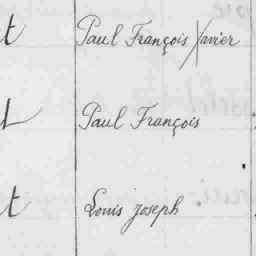 t Paul François Xavier
t Paul François
t Louis Joseph